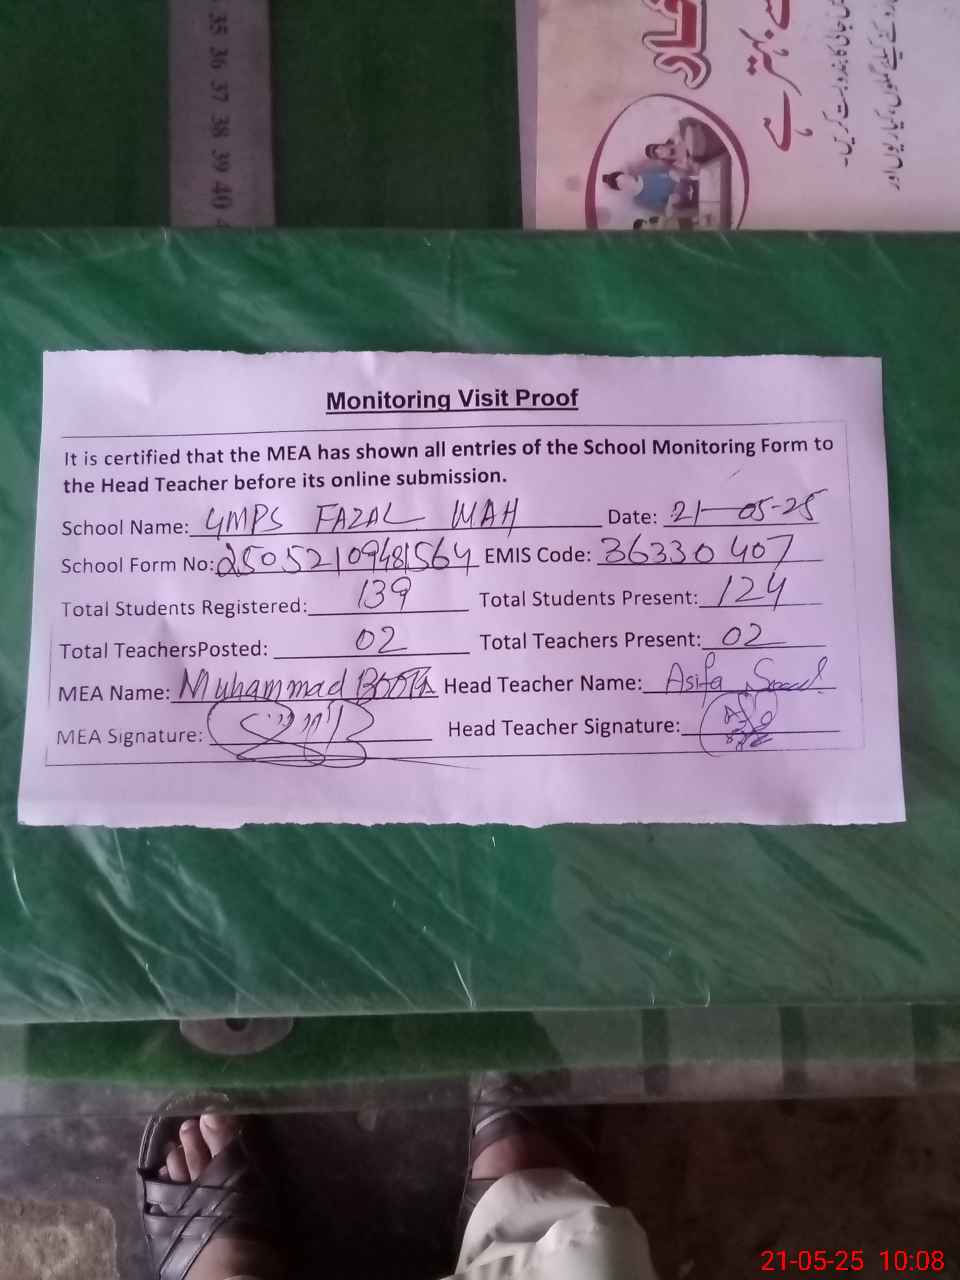 35 36 37 38 39 40
سے بہتر ہے
Monitoring Visit Proof
It is certified that the MEA has shown all entries of the School Monitoring Form to
the Head Teacher before its online submission.
School Name: GMPS FAZAL WAH Date: 21-05-25
School Form No: 25052109481564 EMIS Code: 36330407
Total Students Registered: 139 Total Students Present: 124
Total TeachersPosted: 02 Total Teachers Present: 02
MEA Name: Muhammad Boota Head Teacher Name: Asifa
MEA Signature: Head Teacher Signature:
21-05-25 10:08